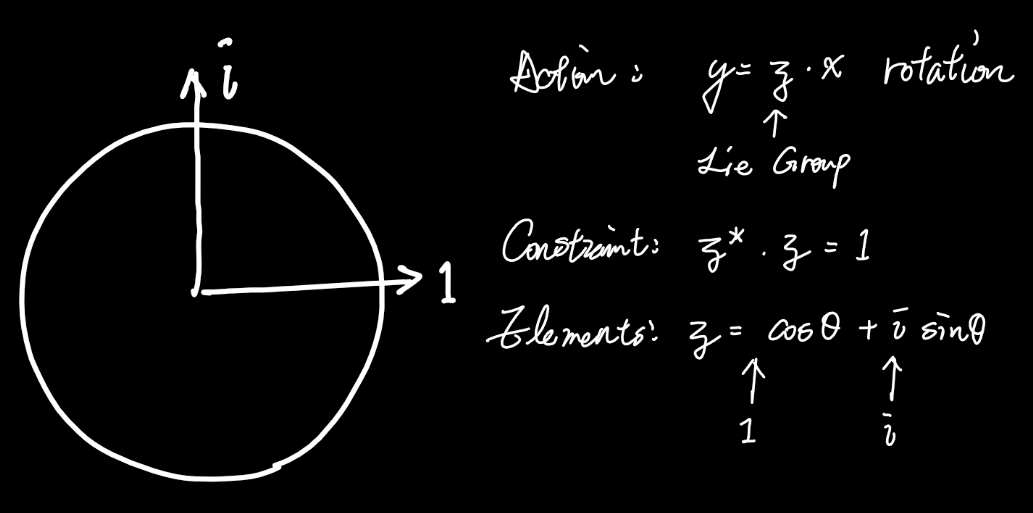 i
1
Action: y = z · x rotation
↑
Lie Group
Constraint: z* · z = 1
Elements: z = cos θ + i sin θ
↑ ↑
1 i